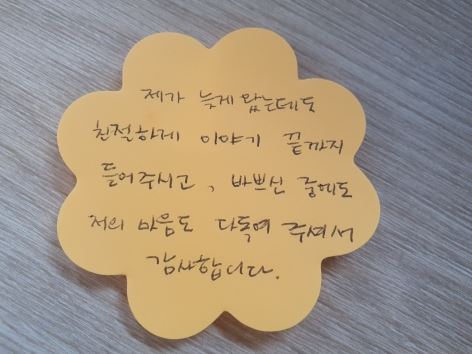 제가 늦게 왔는데도
친절하게 이야기 끝까지
들어주시고, 바쁘신 줄에도
저의 마음도 다독여 주셔서
감사합니다.